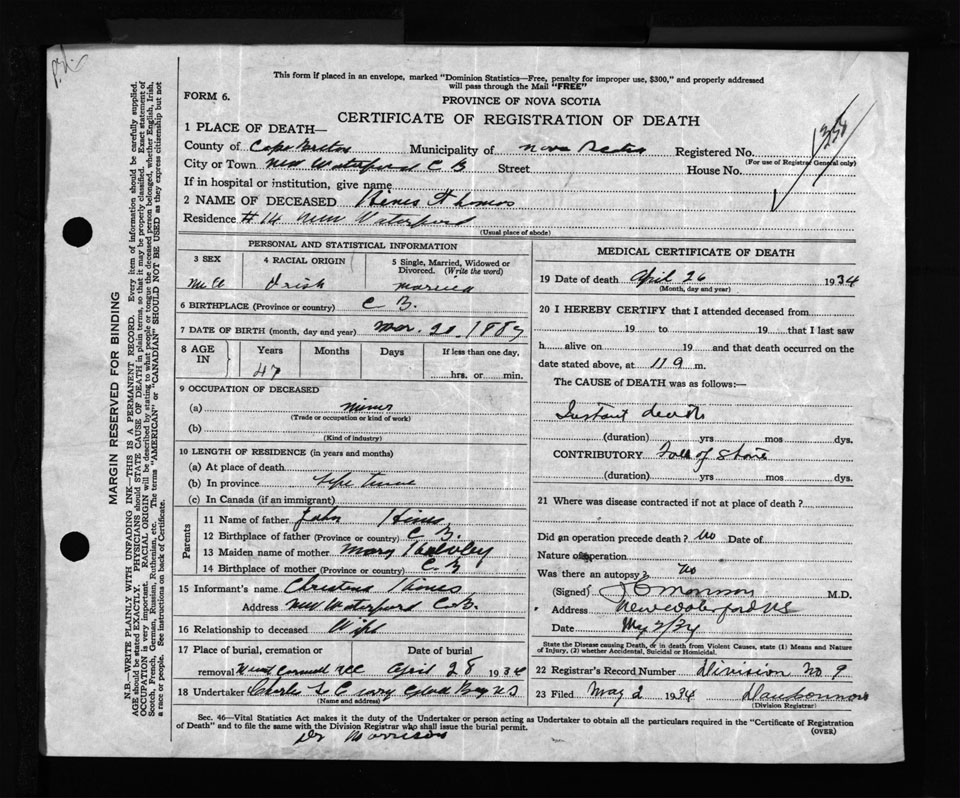 This form if placed in an envelope, marked "Dominion Statistics—Free, penalty for improper use, $300," and properly addressed
will pass through the Mail "FREE"
FORM 6.
PROVINCE OF NOVA SCOTIA
CERTIFICATE OF REGISTRATION OF DEATH
1 PLACE OF DEATH—
County of Cape Breton Municipality of Nova Scotia Registered No.
(For use of Registrar General only)
City or Town New Waterford C B Street House No.
If in hospital or institution, give name
2 NAME OF DECEASED Hines Thomas
Residence #14 New Waterford
(Usual place of abode)
PERSONAL AND STATISTICAL INFORMATION
3 SEX 4 RACIAL ORIGIN 5 Single, Married, Widowed or
Divorced. (Write the word)
Male Irish married
6 BIRTHPLACE (Province or country) C B.
7 DATE OF BIRTH (month, day and year) Mar. 20, 1887
8 AGE IN Years Months Days If less than one day,
47 hrs. or min.
9 OCCUPATION OF DECEASED
(a) miner
(Trade or occupation or kind of work)
(b)
(Kind of industry)
10 LENGTH OF RESIDENCE (in years and months)
(a) At place of death
(b) In province life time
(c) In Canada (if an immigrant)
Parents
11 Name of father John Hines
12 Birthplace of father (Province or country) C B.
13 Maiden name of mother Mary
14 Birthplace of mother (Province or country) C B
15 Informant's name Christena Hines
Address New Waterford C.B.
16 Relationship to deceased Wife
17 Place of burial, cremation or Date of burial
removal Mount Carmell April 28 1934
18 Undertaker Charles Glace Bay N S
(Name and address)
MEDICAL CERTIFICATE OF DEATH
19 Date of death April 26 1934
(Month, day and year)
20 I HEREBY CERTIFY that I attended deceased from
19 to 19 that I last saw
h alive on 19 and that death occurred on the
date stated above, at 11 9 m.
The CAUSE of DEATH was as follows:—
Instant death
(duration) yrs mos dys.
CONTRIBUTORY Fall of Stone
(duration) yrs mos dys.
21 Where was disease contracted if not at place of death?
Did an operation precede death? No Date of
Nature of operation
Was there an autopsy? No
(Signed) J C Morrison M.D.
Address New Waterford NS
Date May 2/34
State the Disease causing Death, or in death from Violent Causes, state (1) Means and Nature
of Injury, (2) whether Accidental, Suicidal or Homicidal.
22 Registrar's Record Number Division No 9
23 Filed May 2 1934
(Division Registrar)
Sec. 46—Vital Statistics Act makes it the duty of the Undertaker or person acting as Undertaker to obtain all the particulars required in the "Certificate of Registration
of Death" and to file the same with the Division Registrar who shall issue the burial permit.
(OVER)
Dr Morrison
MARGIN RESERVED FOR BINDING
N.B.—WRITE PLAINLY WITH UNFADING INK—THIS IS A PERMANENT RECORD. Every item of information should be carefully supplied.
AGE should be stated EXACTLY. PHYSICIANS should STATE CAUSE OF DEATH in plain terms, so that it may be properly classified. Exact statement of
OCCUPATION is very important. RACIAL ORIGIN will be described by stating to what people or tongue the deceased person belonged, whether English, Irish,
Scotch, French, German, Russian, Ruthenian, etc. The terms "AMERICAN" or "CANADIAN" SHOULD NOT BE USED as they express citizenship but not
a race or people. See instructions on back of Certificate.